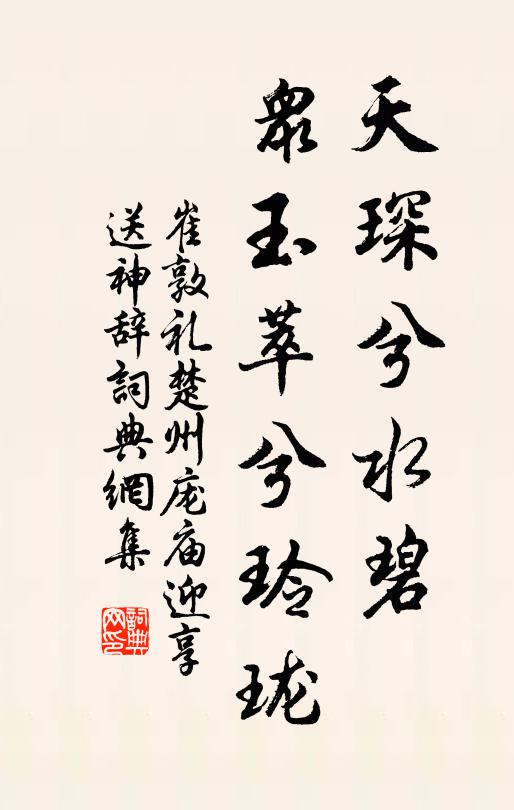 天琛兮水碧
衆玉萃兮玲珑
崔敦礼楚州庞庙迎享
送神辞詞典網集
詞典
网印